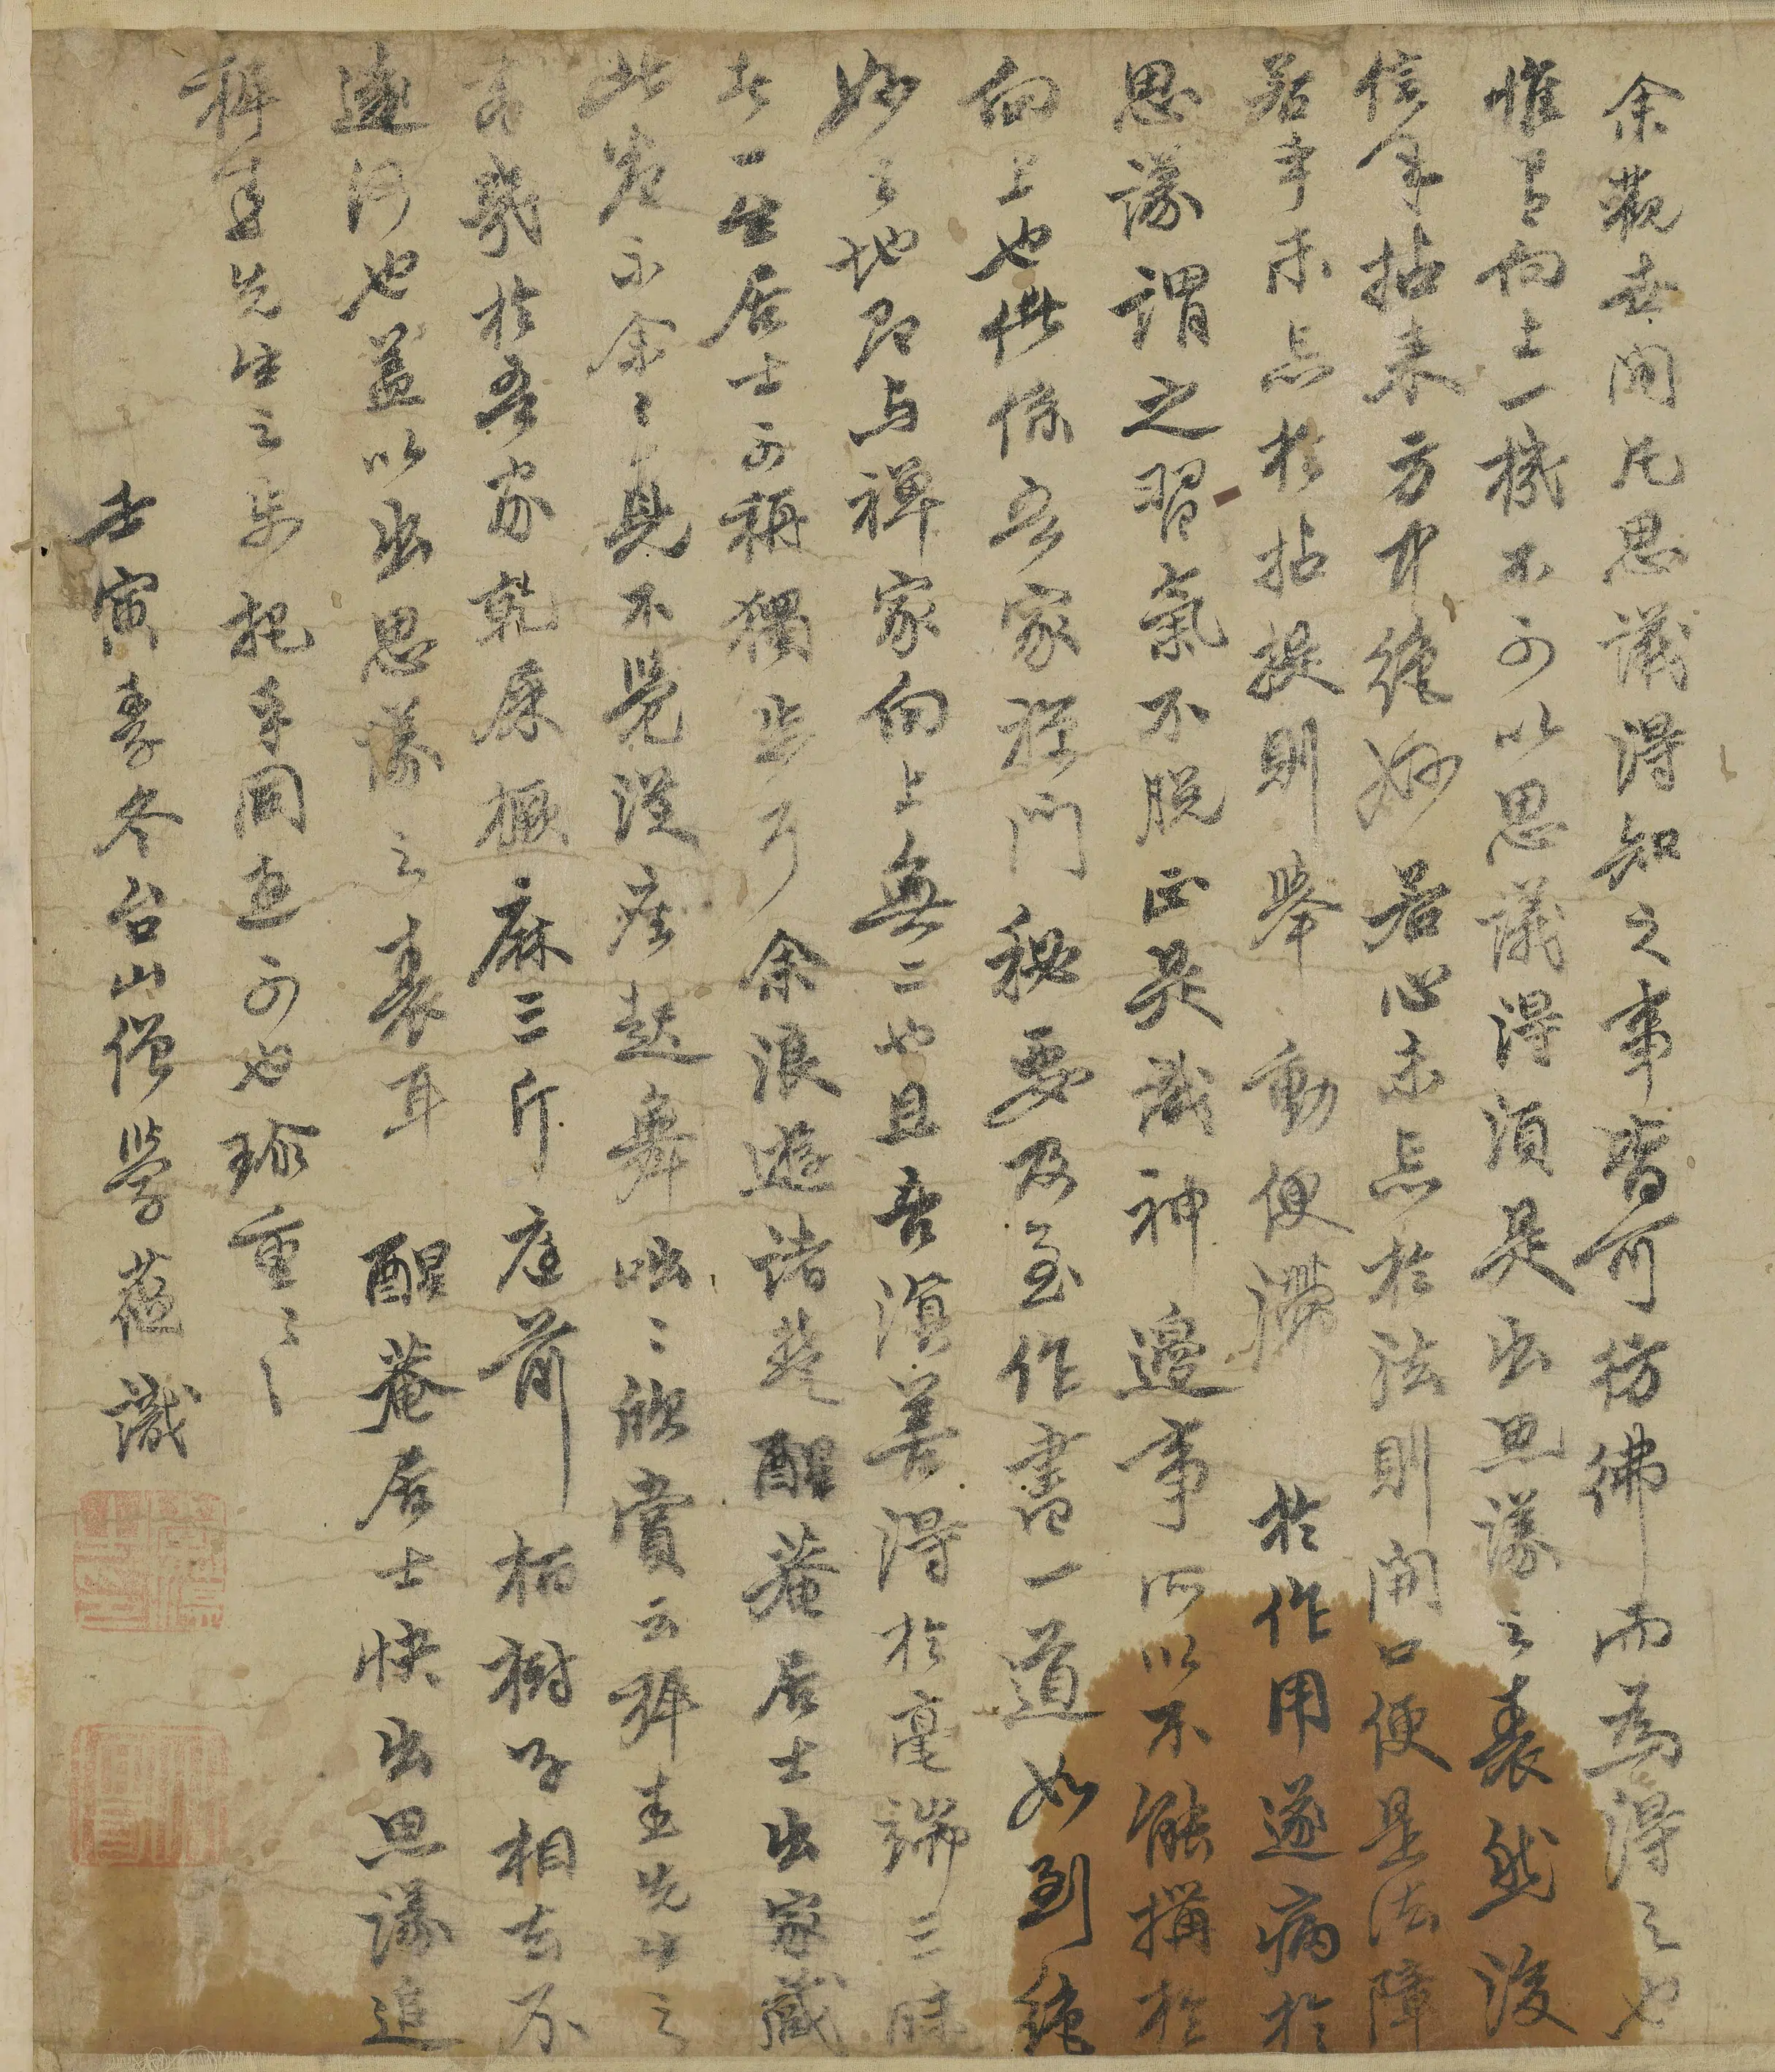 余觀世間凡思議得知之事皆可彷彿而為得之也
惟有向上一機不可以思議得須是出思議之表然後
信手拈来方中絶妙若心未忘於法則開口便是法障
若手未忘於拈提則舉動便滯於作用遂病於
思議謂之習氣不脱正是識神邊事所以不能搆於
向上也儻係吾家禪門秘要及至作書一道如到絶
妙之地即与禪家向上無二也且吾滇善得於毫端三昧
者一生居士可稱獨步予余浪遊諸楚醒菴居士出家藏
此卷示余余見不覺從座起舞咄咄欣賞云担先生之
書幾於吾家乾屎橛麻三斤庭前栢樹子相去不
遠何也蓋以出思議之表耳醒菴居士快出思議追
先生之步把手同遊可也珍重珍重
壬寅季冬台山僧學蘊識